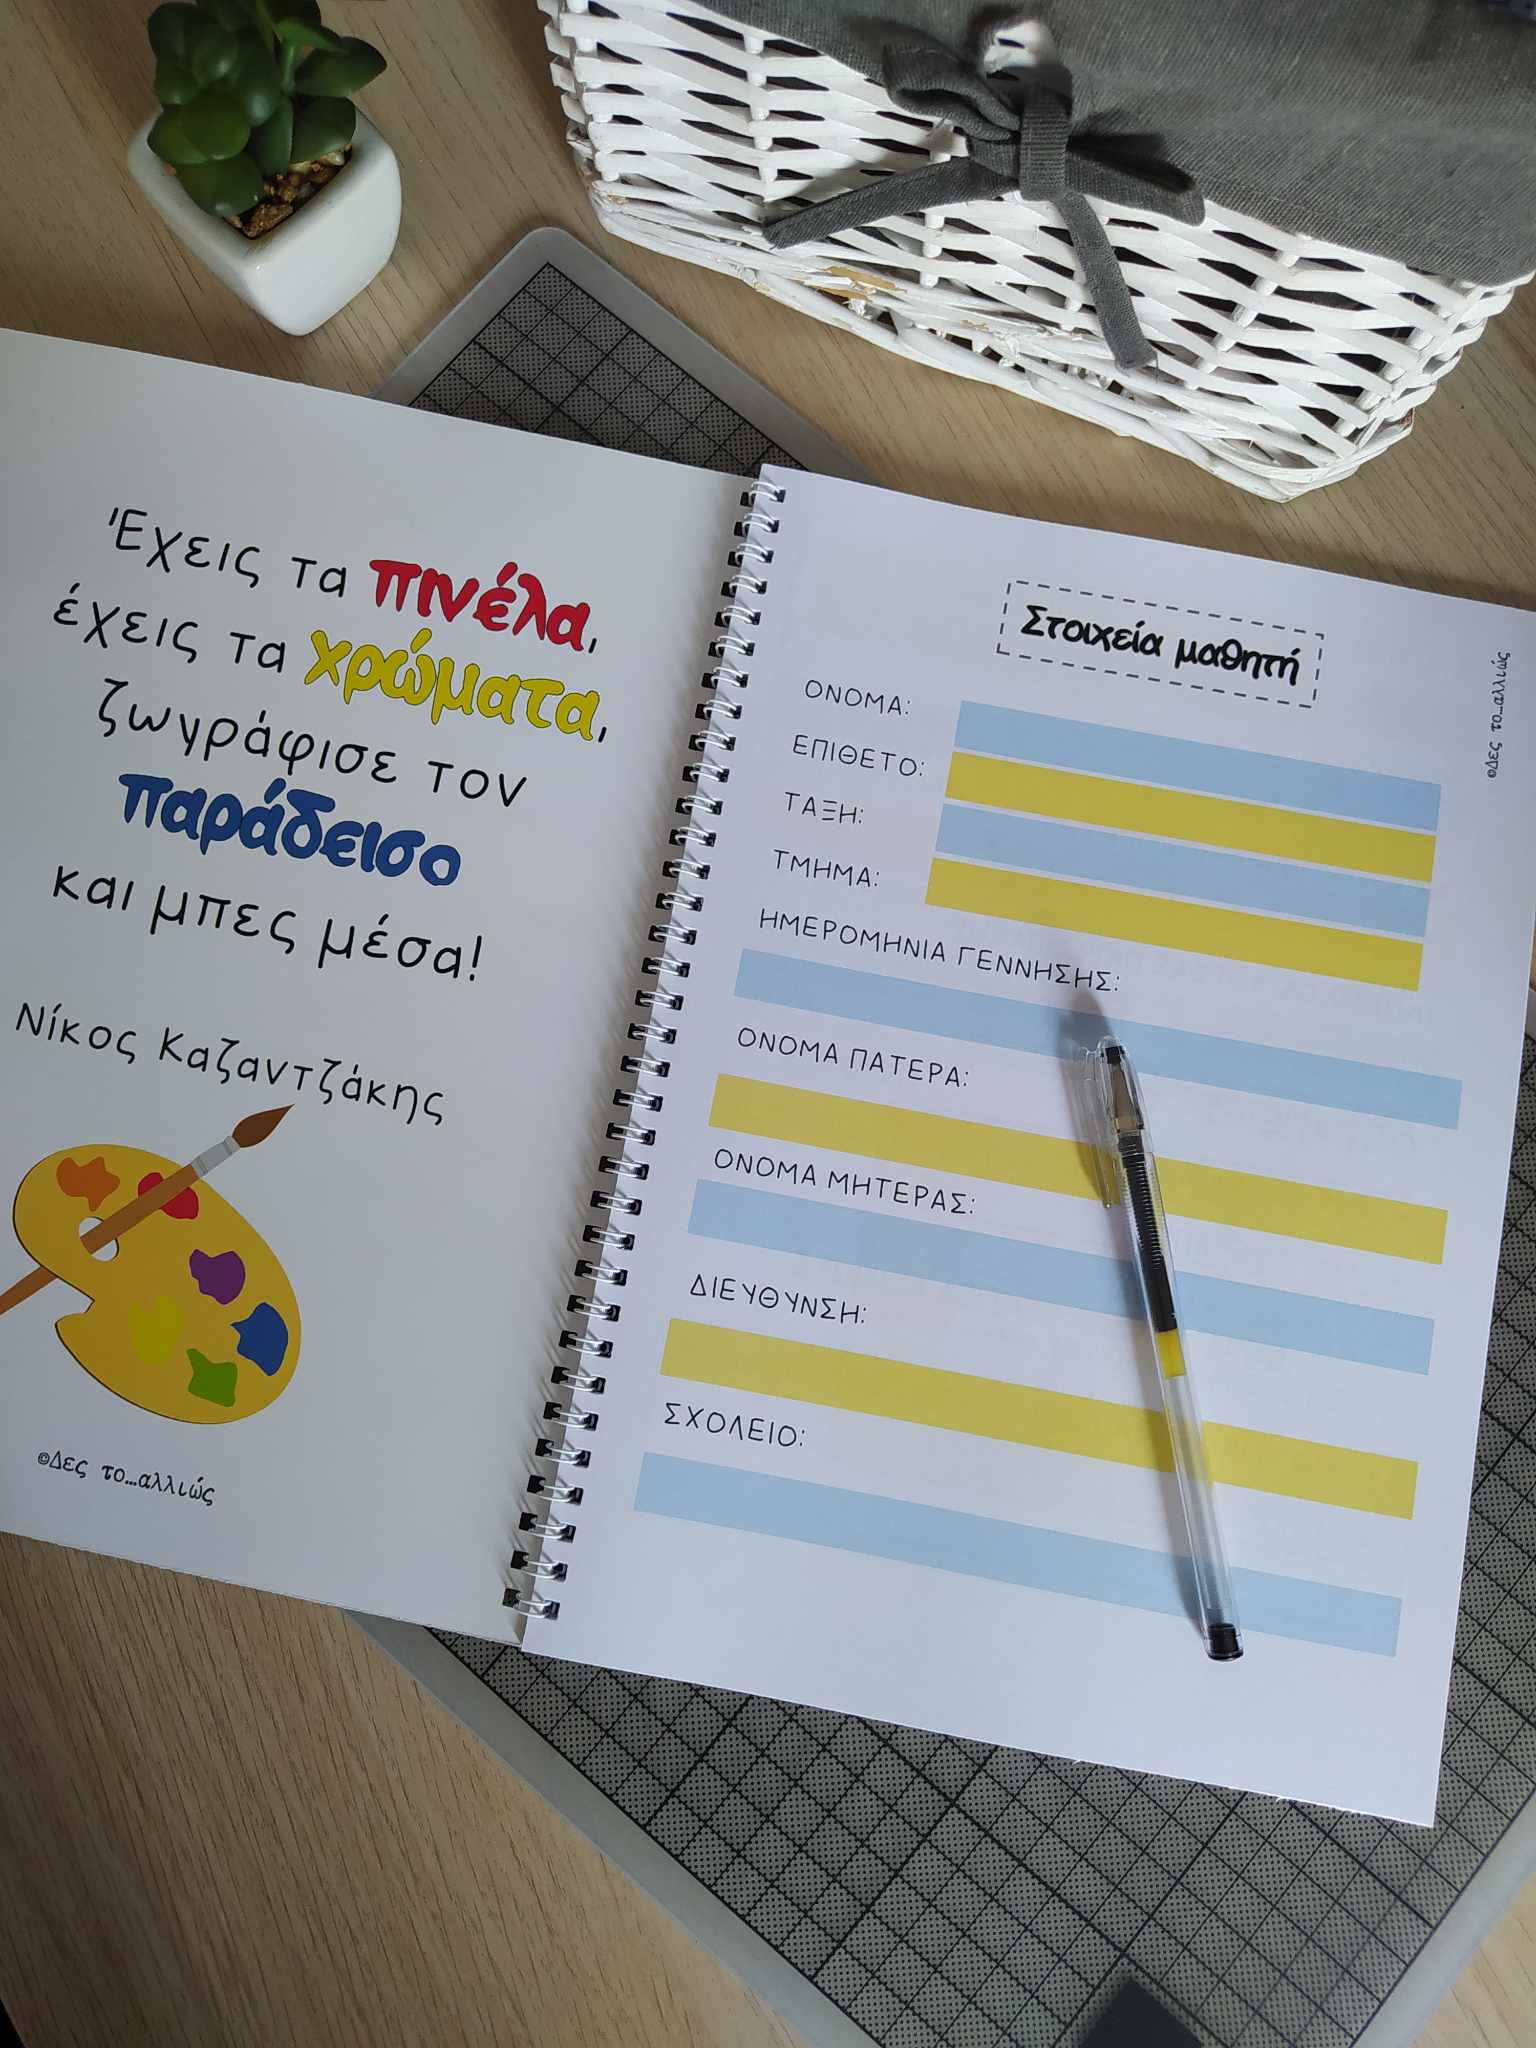 Έχεις τα πινέλα,
έχεις τα χρώματα,
ζωγράφισε τον
παράδεισο
και μπες μέσα!
Νίκος Καζαντζάκης
©Δες το...αλλιώς
Στοιχεία μαθητή
ΟΝΟΜΑ:
ΕΠΙΘΕΤΟ:
ΤΑΞΗ:
ΤΜΗΜΑ:
ΗΜΕΡΟΜΗΝΙΑ ΓΕΝΝΗΣΗΣ:
ΟΝΟΜΑ ΠΑΤΕΡΑ:
ΟΝΟΜΑ ΜΗΤΕΡΑΣ:
ΔΙΕΥΘΥΝΣΗ:
ΣΧΟΛΕΙΟ:
©Δες το...αλλιώς